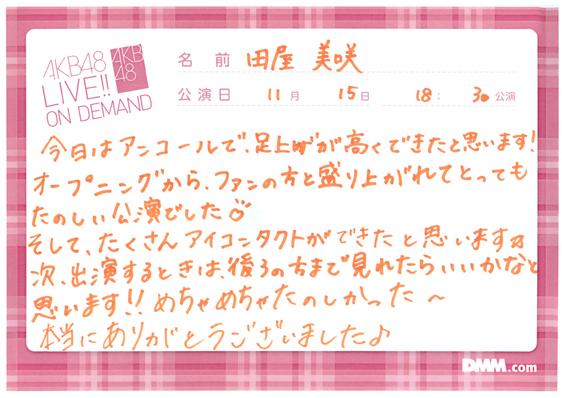 AKB48
LIVE!!
ON DEMAND
AKB
48
名前 田屋 美咲
公演日 11月 15日 18:30公演
今日はアンコールで、足上げが高くできたと思います!
オープニングから、ファンの方と盛り上がれてとっても
たのしい公演でした
そして、たくさんアイコンタクトができたと思います
次、出演するときは、後ろの方まで見れたらいいかなと
思います!! めちゃめちゃたのしかった〜
本当にありがとうございました♪
DMM.com